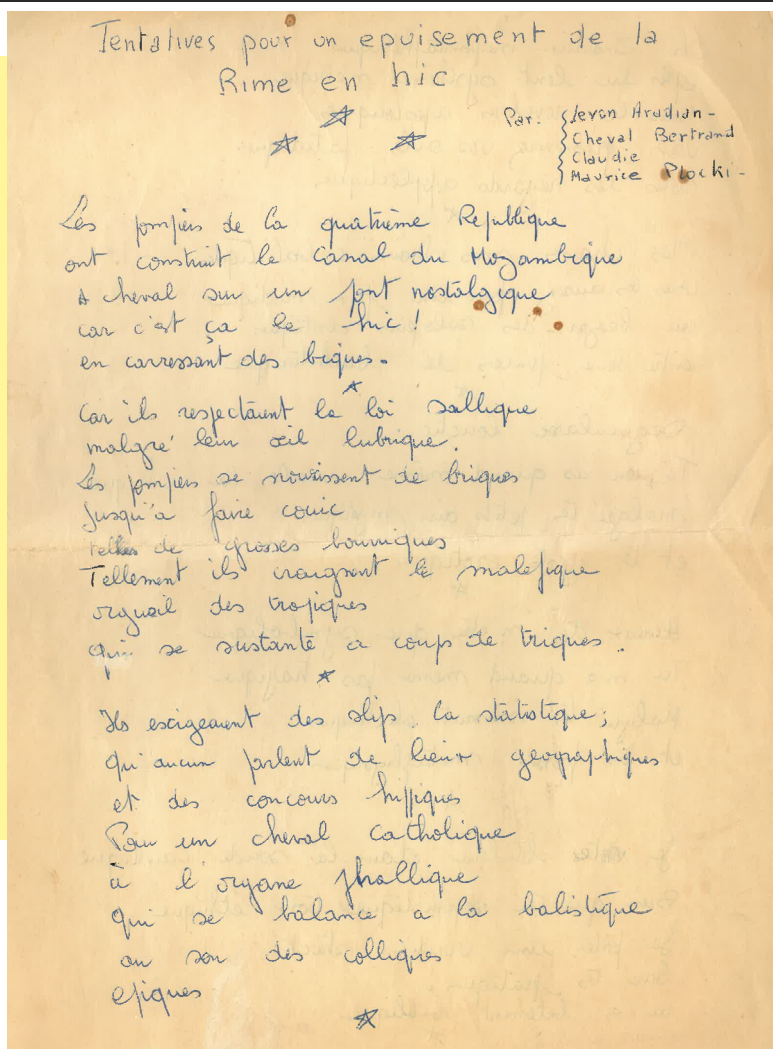 Tentatives pour un epuisement de la
Rime en hic
Par: Sevan Aradian -
Cheval Bertrand
Claudie
Maurice Plocki -
Les pompiers de la quatrième Republique
ont construit le Canal du Mozambique
A cheval sur un pont nostalgique
car c'est ça le hic !
en carressant des biques.
Car ils respectaient la loi sallique
malgré leur œil lubrique.
Les pompiers se nourissent de briques
Jusqu'a faire couic
telles de grosses bourriques
Tellement ils craignent le malefique
orgueil des tropiques
Qui se sustante a coups de triques.
Ils escigeaient des slips la statistique;
Qu'aucun parlent de lieux geographiques
et des concours hippiques
Pour un cheval Catholique
à l'organe phallique
qui se balance a la balistique
au son des colliques
epiques